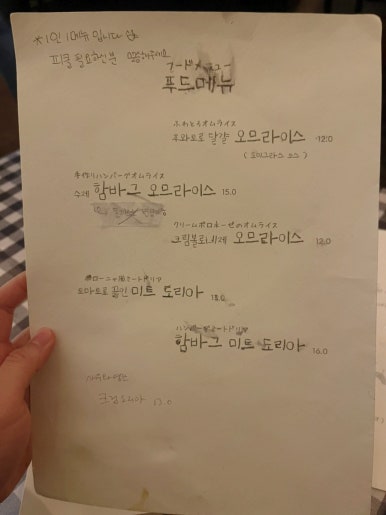 * 1인 1메뉴 입니다
피클 필요하신분 말씀해주세요
フードメニュー
푸드메뉴
ふわとろオムライス
후와토로 달걀 오므라이스 12.0
手作りハンバーグオムライス
수제 함바그 오므라이스 15.0
クリームボロネーゼのオムライス
크림볼로네제 오므라이스 13.0
토마토로 끓인 미트 도리아 13.0
함바그 미트 도리아 16.0
크림도리아 13.0